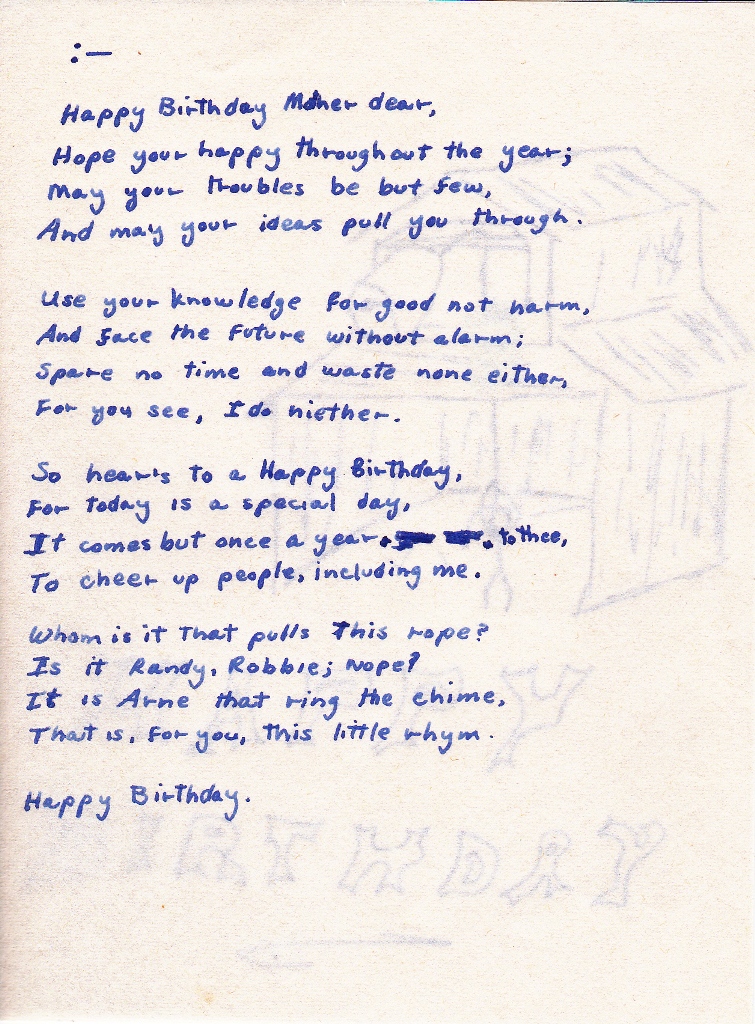 :—
Happy Birthday Mother dear,
Hope your happy throughout the year;
May your troubles be but few,
And may your ideas pull you through.
Use your knowledge for good not harm,
And face the future without alarm;
Spare no time and waste none either,
For you see, I do niether.
So hear's to a Happy Birthday,
For today is a special day,
It comes but once a year, to thee,
To cheer up people, including me.
Whom is it that pulls this rope?
Is it Randy, Robbie; Nope?
It is Arne that ring the chime,
That is, for you, this little rhym.
Happy Birthday.
HAPPY
BIRTHDAY